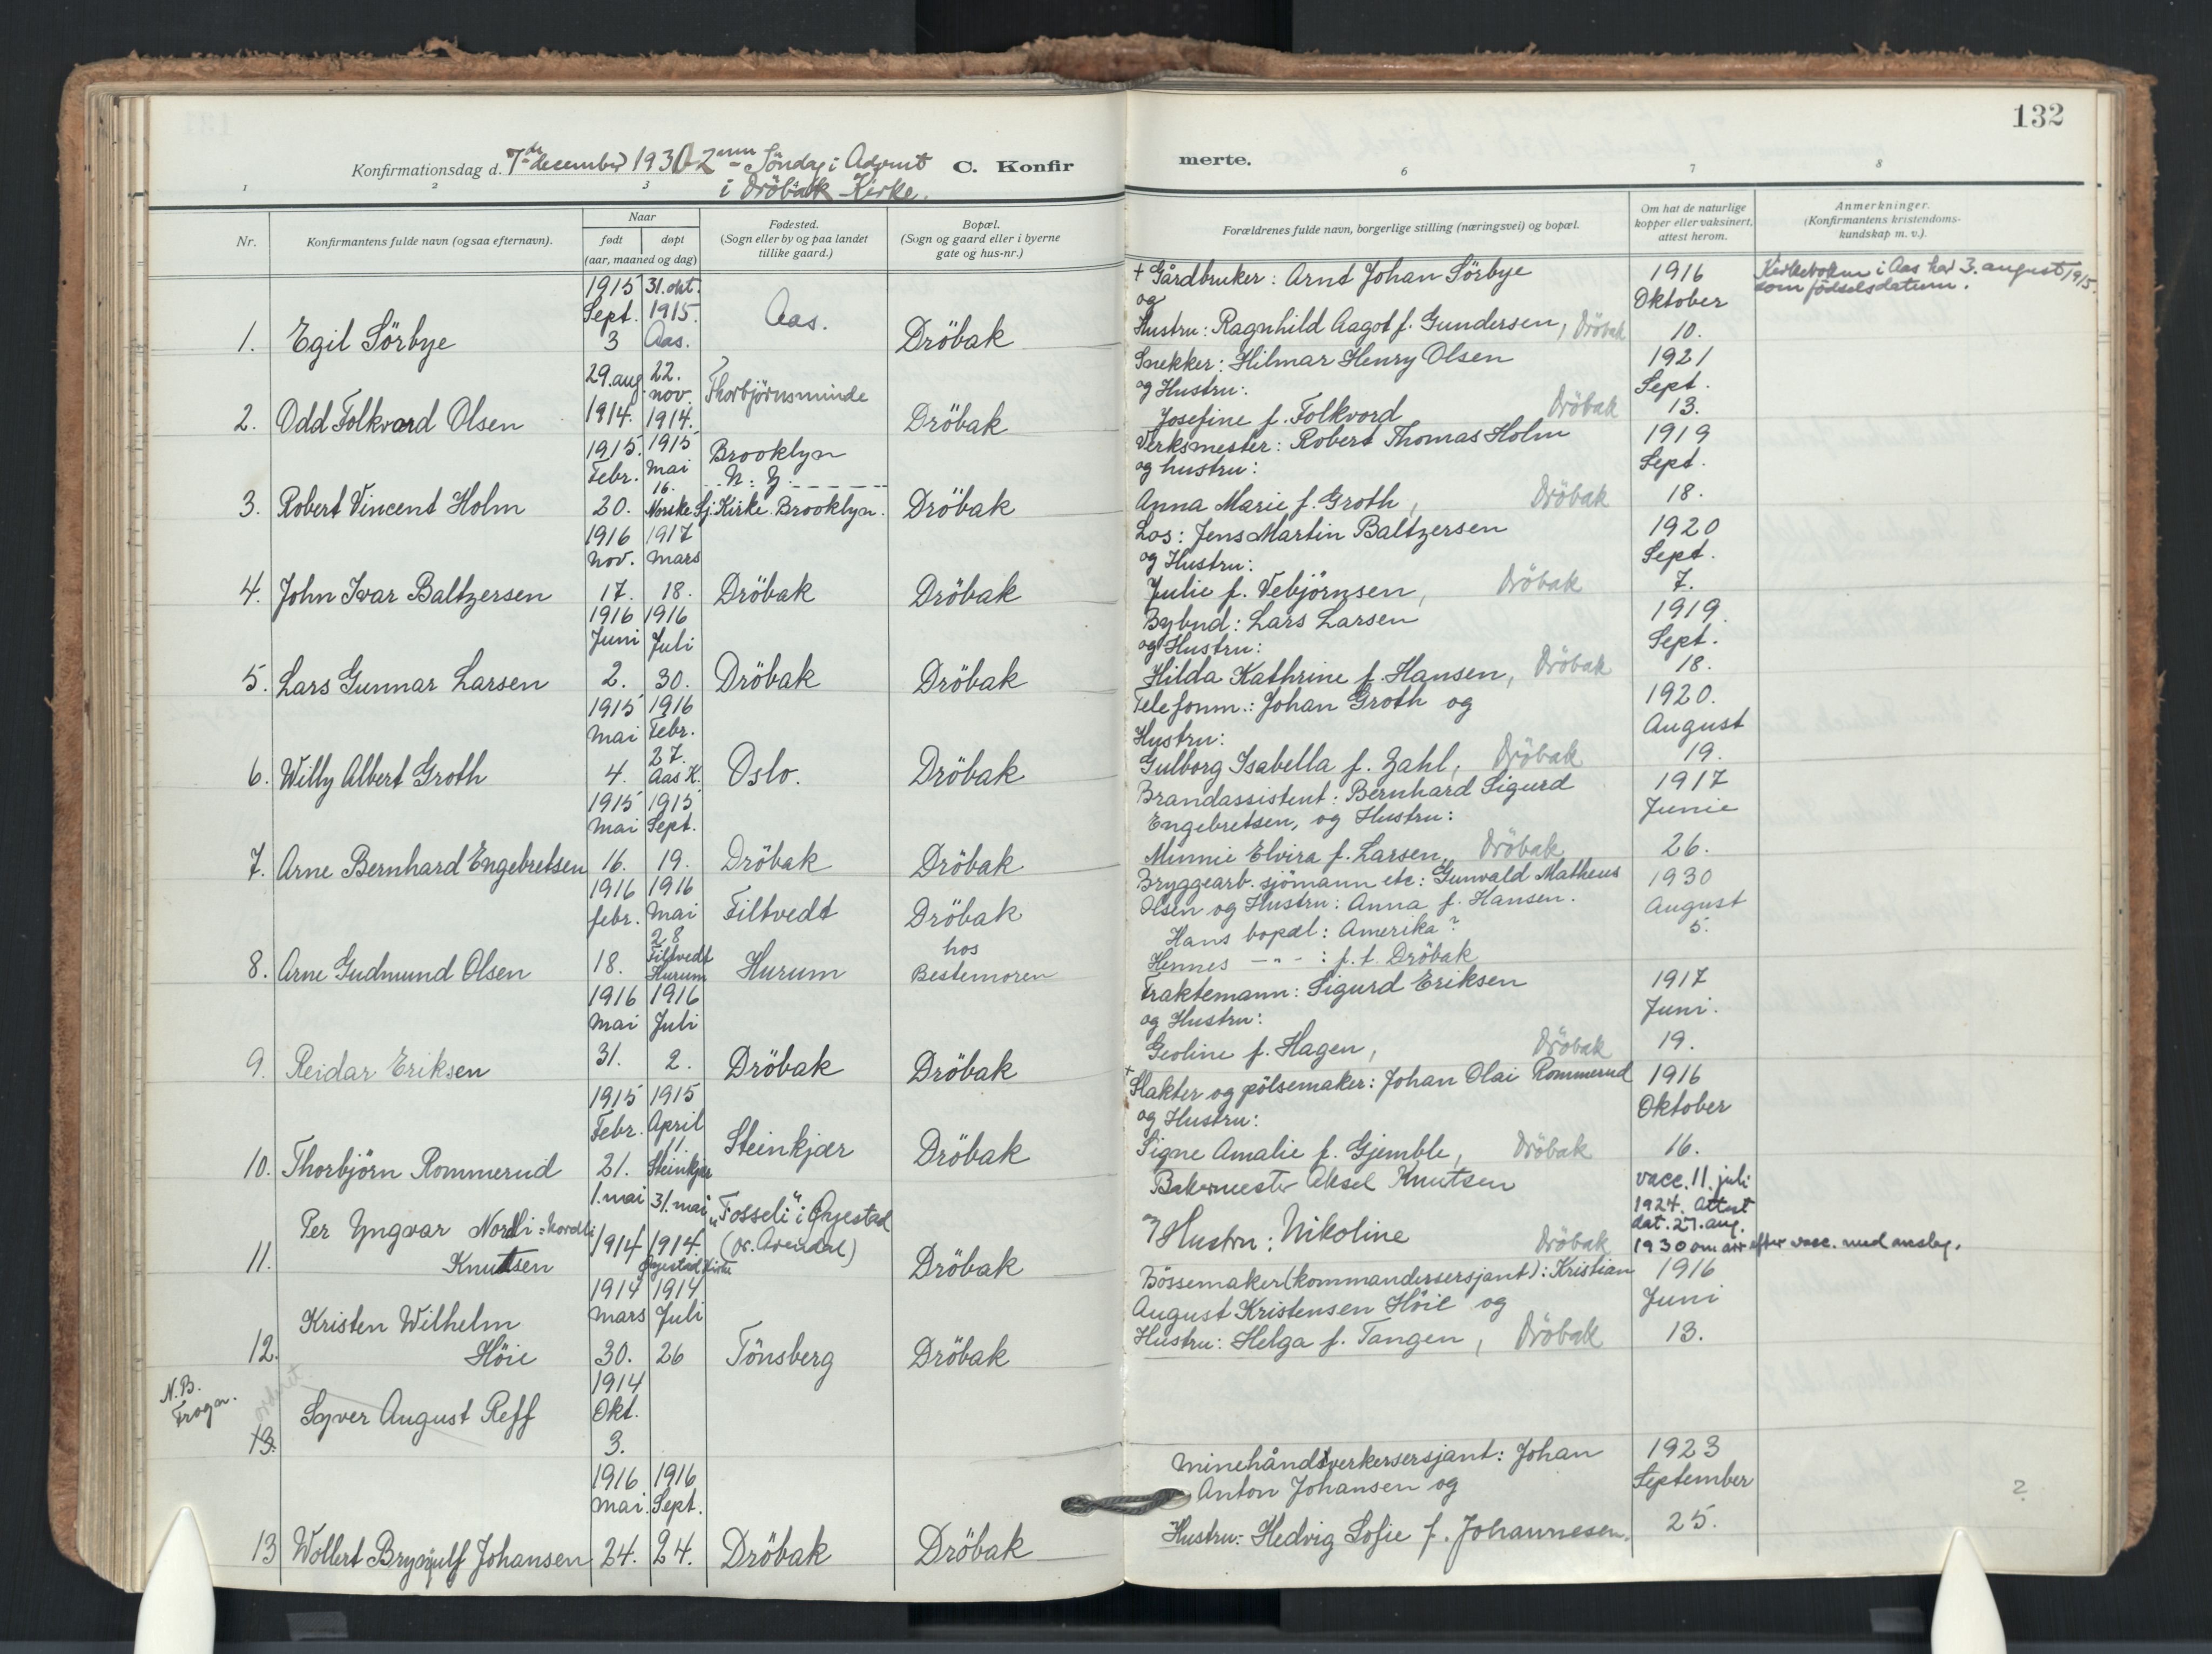 132
Konfirmationsdag d. 7de december 1930 2nen Söndag i Advent
i Dröbak Kirke.
C. Konfir
merte.
1 2 3 6 7 8
Nr.
Konfirmantens fulde navn (ogsaa efternavn).
Naar
født døpt
(aar, maaned og dag)
Fødested.
(Sogn eller by og paa landet
tillike gaard.)
Bopæl.
(Sogn og gaard eller i byerne
gate og hus-nr.)
Forældrenes fulde navn, borgerlige stilling (næringsvei) og bopæl.
Om hat de naturlige
kopper eller vaksinert,
attest herom.
Anmerkninger.
(Konfirmantens kristendoms-
kundskap m. v.).
1. Egil Sörbye
1915 Sept. 3
31. okt. 1915. Aas.
Aas.
Dröbak
+ Gårdbruker: Arnt Johan Sörbye
og
Hustru: Ragnhild Aagot f. Gundersen, Dröbak
1916 Oktober 10.
Kirkeboken i Aas har 3. august 1915.
som födselsdatum.
2. Odd Folkvard Olsen
29. aug. 1914.
22. nov. 1914.
Thorbjörnsminde
Dröbak
Snekker: Hilmar Henry Olsen
og Hustru:
Josefine f. Folkvord Dröbak
1921 Sept. 13.
3. Robert Vincent Holm
1915. Febr. 20.
1915 Mai 16. Norske Sj. Kirke. Brooklyn.
Brooklyn
N: Y.
Dröbak
Verksmester: Robert Thomas Holm
og hustru:
Anna Marie f. Groth, Dröbak
1919 Sept. 18.
4. John Ivar Baltzersen
1916 Nov. 17.
1917 Mars 18.
Dröbak
Dröbak
Los: Jens Martin Baltzersen
og Hustru:
Julie f. Vebjörnsen, Dröbak
1920 Sept. 7.
5. Lars Gunnar Larsen
1916 Juni 2.
1916 Juli 30.
Dröbak
Dröbak
Bybud: Lars Larsen
og Hustru:
Hilda Kathrine f. Hansen, Dröbak
1919. Sept. 18.
6. Willy Albert Groth
1915 Mai 4.
1916 Febr. 27. Aas K.
Oslo.
Dröbak
Telefonm.: Johan Groth og
Hustru:
Gulborg Isabella f. Zahl, Dröbak
1920. August 19.
7. Arne Bernhard Engebretsen
1915 Mai 16.
1915 Sept. 19.
Dröbak
Dröbak
Brandassistent: Bernhard Sigurd
Engebretsen, og Hustru:
Minnie Elvira f. Larsen, Dröbak
1917 Junie 26.
8. Arne Gudmund Olsen
1916 febr. 18.
1916 Mai 28 Filtvedt Hurum
Filtvedt
Hurum
Dröbak
hos
Bestemoren
Bryggearb. sjömann etc: Gunvald Matheus
Olsen og Hustru: Anna f. Hansen.
Hans bopæl: Amerika?
Hennes - " - : f.t. Dröbak
1930 August 5.
9. Reidar Eriksen
1916 Mai 31.
1916 Juli 2.
Dröbak
Dröbak
Fraktemann: Sigurd Eriksen
og Hustru:
Geoline f. Hagen, Dröbak
1917 Juni. 19.
10. Thorbjörn Rommerud
1915 Febr. 21.
1915 April 11. Steinkjær
Steinkjær
Dröbak
+ Slakter og pölsemaker: Johan Olai Rommerud
og Hustru:
Signe Amalie f. Gjemble, Dröbak
1916 Oktober 16.
11. Per Yngvar Nordli = Nordli
Knutsen
1. mai 1914
31. mai 1914. Øyestad kirke
"Fosseli" i Øyestad
(pr. Arendal)
Dröbak
Bakermester Aksel Knutsen
og Hustru: Nikoline
Dröbak
vacc. 11. juli
1924. Attest
dat. 27. aug.
1930 om arr efter vacc. med ansleg.
12. Kristen Wilhelm
Höie
1914 Mars 30.
1914 Juli 26
Tönsberg
Dröbak
Bössemaker (kommandersersjant): Kristian
August Kristensen Höie og
Hustru: Helga f. Tangen, Dröbak
1916 Juni 13.
N.B.
Frogn.
13. Syver August Reff
1914 Okt. 3.
13 Wollert Brynjulf Johansen
1916 Mai. 24.
1916 Sept. 24.
Dröbak
Dröbak
Minehåndtverkersersjant: Johan
Anton Johansen og
Hustru: Hedvig Sofie f. Johannesen.
1923 September 25.
?